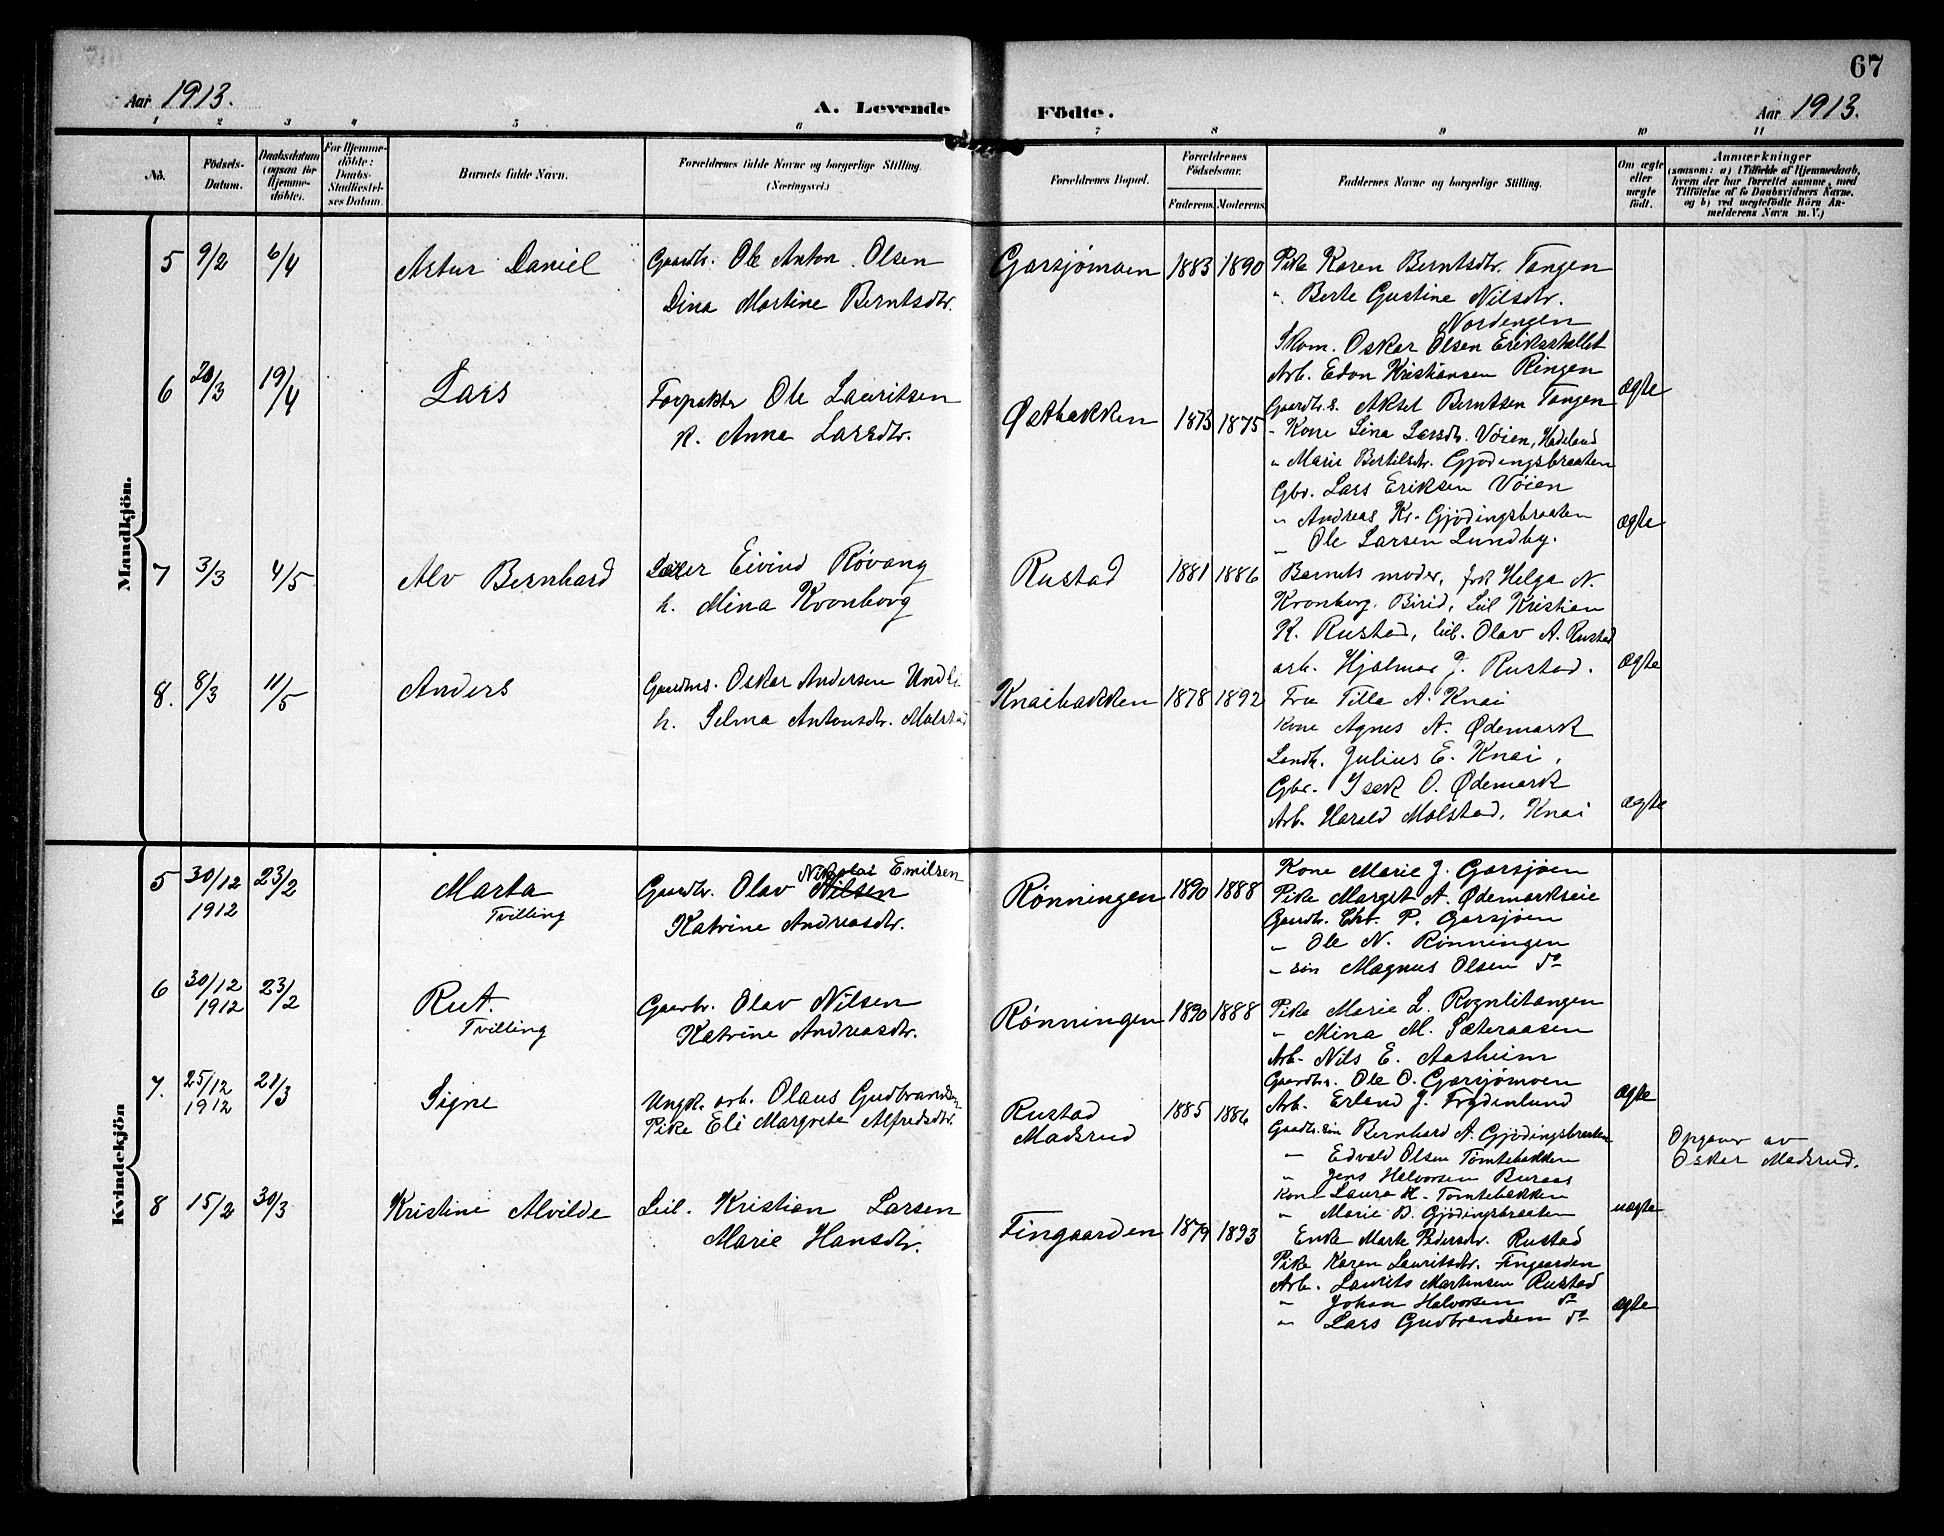 67
Aar 1913.
A. Levende
Födte.
Aar 1913.
1 2 3 4 5 6 7 8 9 10 11
No.
Födsels-
Datum.
Daabsdatum
(ogsaa for
Hjemme-
döbte).
For Hjemme-
döbte:
Daabs-
Stadfæstel-
ses Datum.
Barnets fulde Navn.
Forældrenes fulde Navne og borgerlige Stilling.
(Næringsvei.)
Forældrenes Bopæl.
Forældrenes
Födselsaar.
Faderens. Moderens.
Faddernes Navne og borgerlige Stilling.
Om ægte
eller
uægte
födt.
Anmærkninger
(saasom: a) i Tilfælde af Hjemmedaab,
hvem der har forrettet samme, med
Tilföielse af to Daabsvidners Navne,
og b) ved uægtefödte Börn An-
melderens Navn m. V.)
Mandkjön.
5 9/2 6/4 Artur Daniel Gaardbr. Ole Anton Olsen
Dina Martine Berntsdtr.
Garsjømoen 1883 1890 Pike Karen Berntsdtr. Tangen
" Berte Gustine Nilsdtr.
Nordengen
Skom. Oskar Olsen Eriksstallet
Arb. Edon Kristiansen Ringen
Gaardbr. s. Aksel Berntsen Tangen ægte
6 20/3 19/4 Lars Forpakter Ole Lauritsen
k. Anna Larsdtr.
Østbakken 1873 1875 - Kone Lina Larsdtr. Vøien, Hadeland
" Marie Bertilsdtr. Gjødingsbraaten
Gbr. Lars Eriksen Vøien
" Andreas Kr. Gjødingsbraaten
" Ole Larsen Lundby. ægte
7 3/3 4/5 Alv Bernhard Lærer Eivind Røvang
h. Mina Kronborg
Rustad 1881 1886 Barnets moder, frk Helga N.
Kronborg, Birid, Leil Kristian
K. Rustad, leil. Olav A. Rustad
arb. Hjalmar J. Rustad. ægte
8. 8/3 11/5 Anders Gaardbrs. Oskar Andersen Undli
h. Selma Antonsdtr. Molstad
Knaibakken 1878 1892 Fru Tilla A. Knai
Kone Agnes A. Ødemark
Landh. Julius E. Knai,
Gbr. Isak O. Ødemark
Arb. Harald Molstad, Knai ægte
Kvindekjön
5 30/12 1912 23/2 Marta
Tvilling
Gaardbr. Olav Nilsen Nikolai Emilsen
Katrine Andreasdtr.
Rønningen 1890 1888 Kone Marie J. Garsjøen
Pike Margit A. Ødemarkseie
Gaardbr. Chr. P. Garsjøen
" Ole N. Rønningen
" søn Magnus Olsen do
6 30/12 1912 23/2 Rut.
Tvilling
Gaardbr. Olav Nilsen
Katrine Andreasdtr.
Rønningen 1890 1888 Pike Marie L. Rognlitangen
" Mina M. Sæteraasen
Arb. Nils E. Aasheim
Gaardbr. Ole O. Garsjømoen
Arb. Erland J. Frydenlund ægte
7. 25/12 1912 21/3 Signe Ungk. arb. Olaus Gudbrandsen
Pike Eli Margrete Alfredsdtr.
Rustad
Madsrud
1885 1886 Gaardbr. søn Bernhard A. Gjødingsbraaten
" Edvald Olsen Tømtebakken
" Jens Halvorsen Buraas
Kone Laura H. Tømtebakken
" Marie B. Gjødingsbraaten uægte
Opgaver av
Oskar Madsrud.
8 15/2 30/3 Kristine Alvilde Leil. Kristian Larsen
Marie Hansdtr.
Fingaarden 1879 1893 Enke Marte Pedersdtr. Rustad
Pike Karen Lauritsdtr. Fingaarden
Arb. Laurits Martinsen Rustad
" Johan Halvorsen do
" Lars Gudbrandsen do ægte